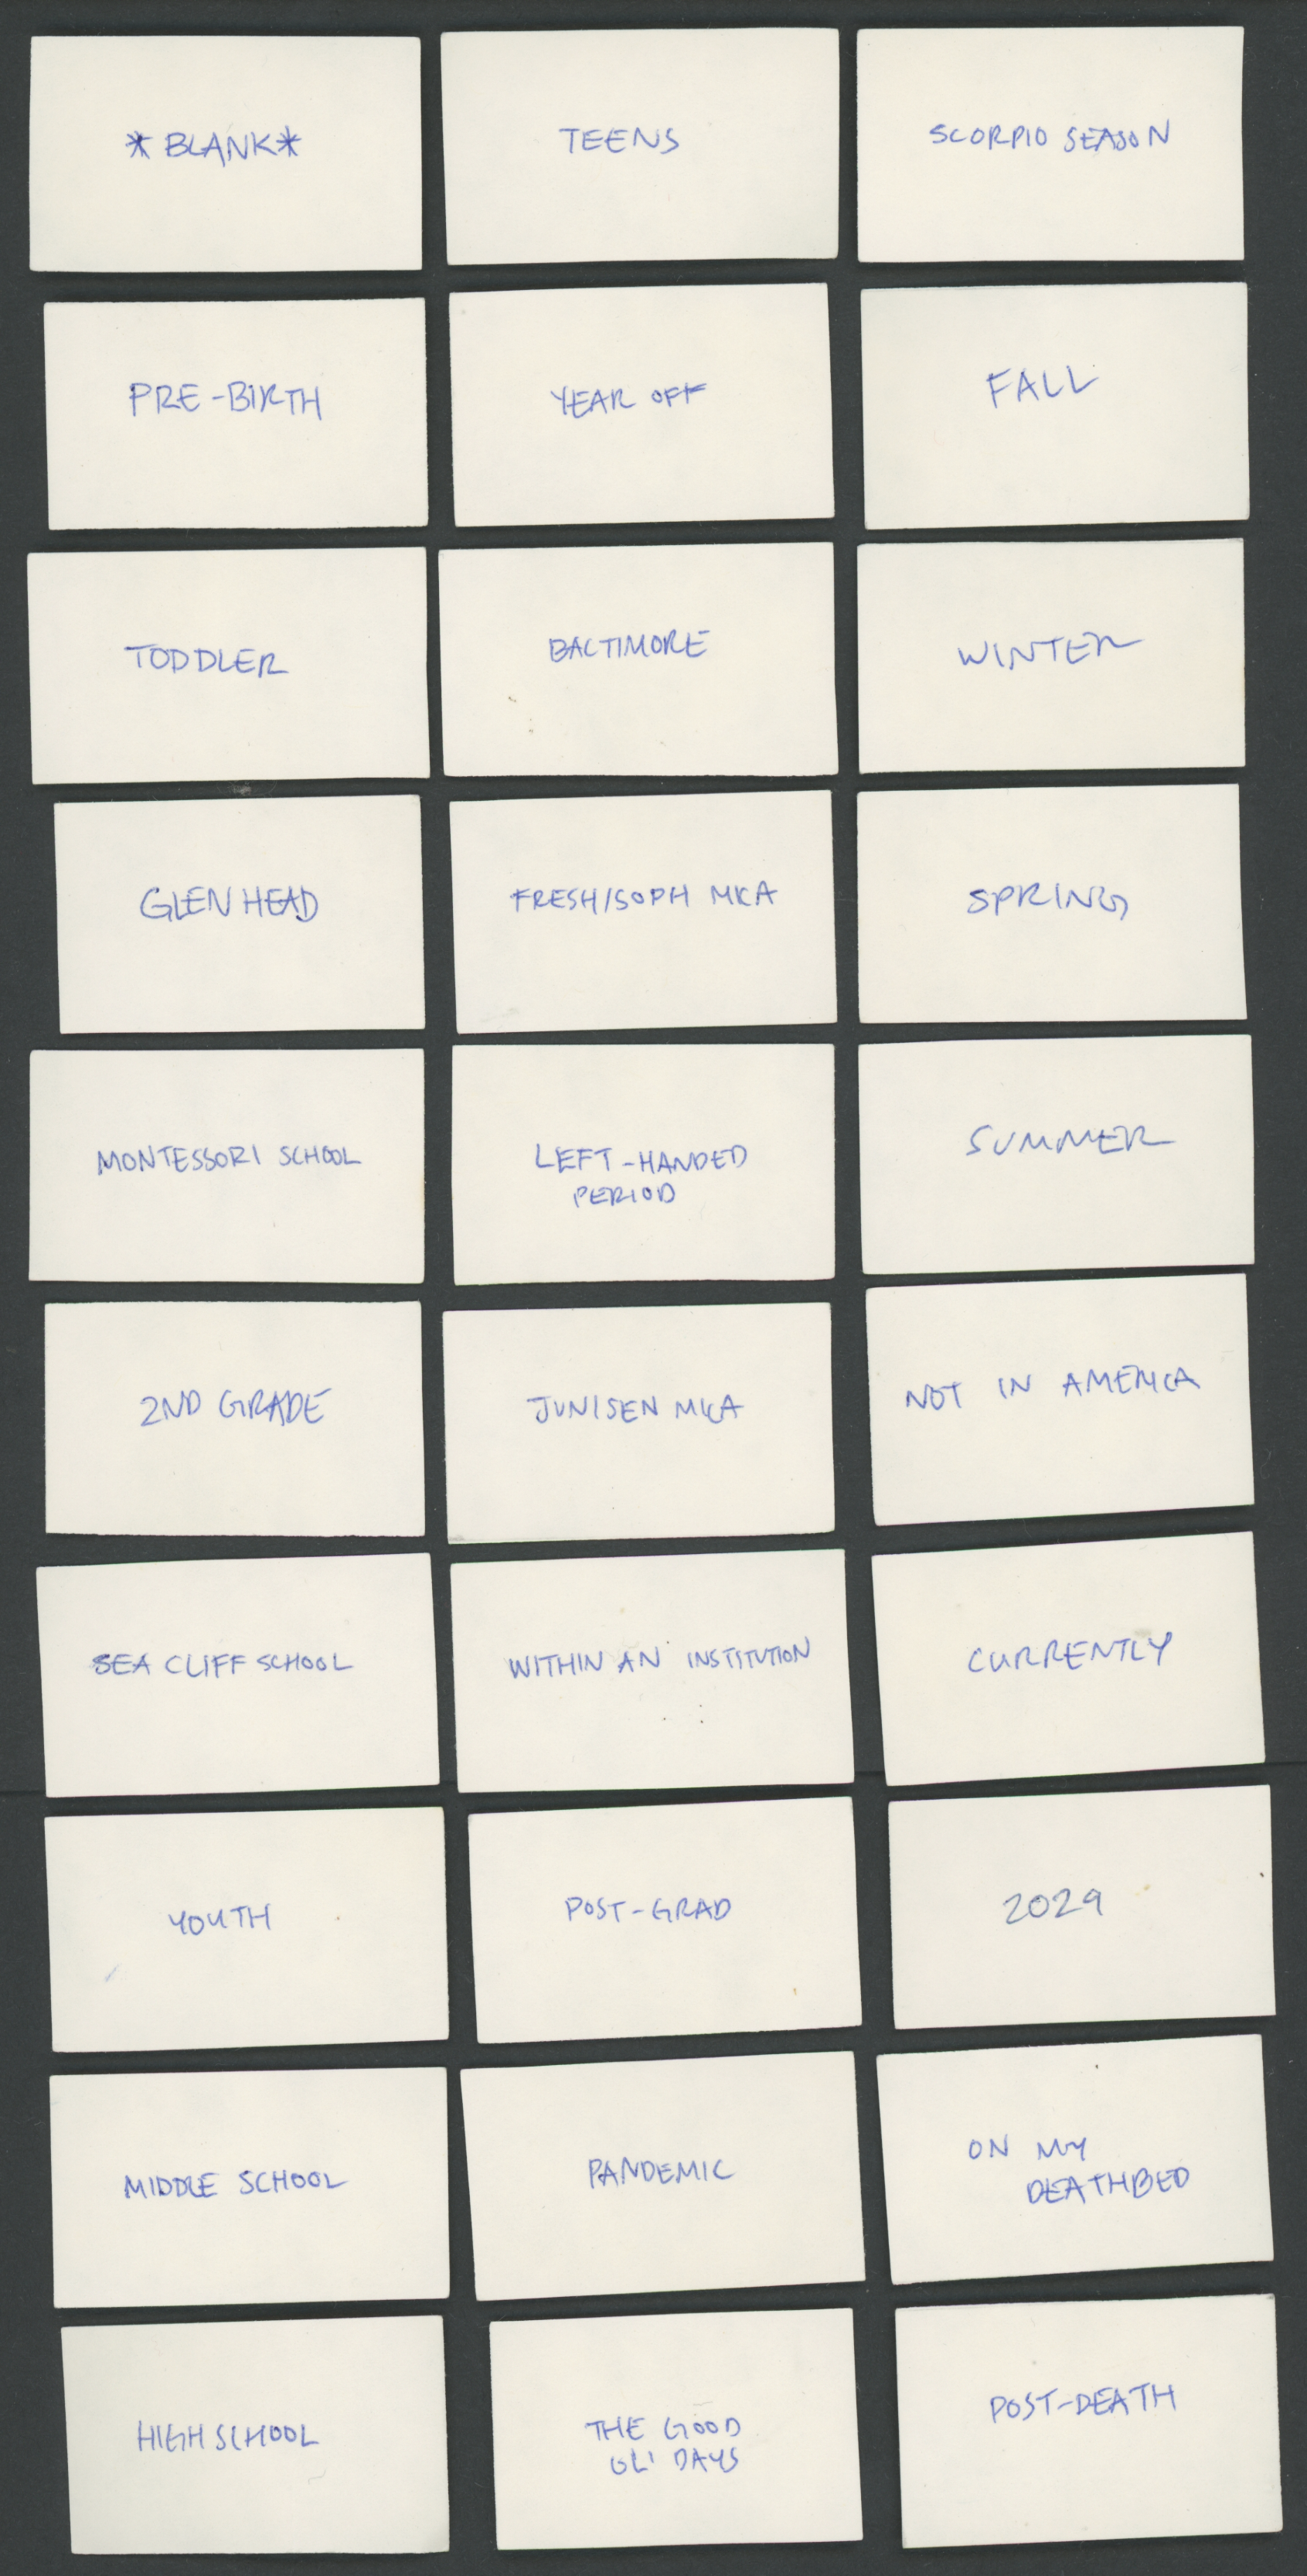 *BLANK*
TEENS
SCORPIO SEASON
PRE-BIRTH
YEAR OFF
FALL
TODDLER
BALTIMORE
WINTER
GLEN HEAD
FRESH/SOPH MKA
SPRING
MONTESSORI SCHOOL
LEFT-HANDED
PERIOD
SUMMER
2ND GRADE
JUNISEN MKA
NOT IN AMERICA
SEA CLIFF SCHOOL
WITHIN AN INSTITUTION
CURRENTLY
YOUTH
POST-GRAD
2029
MIDDLE SCHOOL
PANDEMIC
ON MY
DEATHBED
HIGH SCHOOL
THE GOOD
OL' DAYS
POST-DEATH